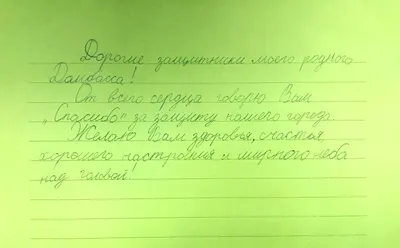 Дорогие защитники моего родного
Донбасса!
От всего сердца говорю Вам
„Спасибо" за защиту нашего города.
Желаю Вам здоровья, счастья,
хорошего настроения и мирного неба
над головой!